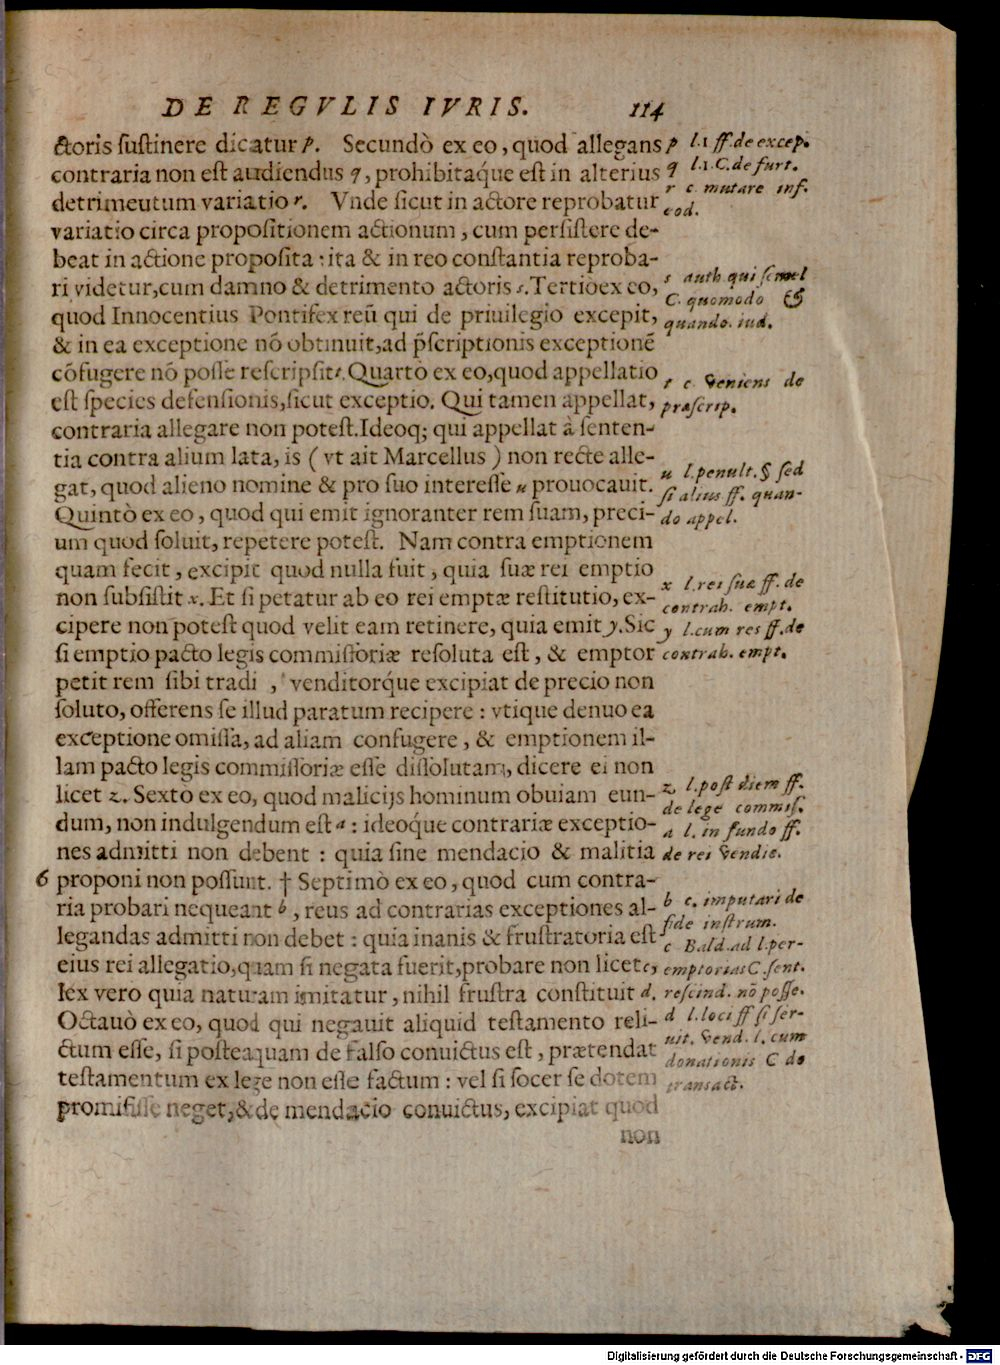 DE REGVLIS IVRIS. 114
ctoris ſuſtinere dicatur p. Secundò ex eo, quod allegans
contraria non eſt audiendus q, prohibitaq́ue eſt in alterius
detrimeutum variatio r. Vnde ſicut in actore reprobatur
variatio circa propoſitionem actionum, cum perſiſtere de-
beat in actione propoſita: ita & in reo conſtantia reproba-
ri videtur, cum damno & detrimento actoris s. Tertio ex eo,
quod Innocentius Pontifex reū qui de priuilegio excepit,
& in ea exceptione nō obtinuit, ad p̄ſcriptionis exceptionē
cōfugere nō poſſe reſcripſit t. Quartò ex eo, quod appellatio
eſt ſpecies defenſionis, ſicut exceptio. Qui tamen appellat,
contraria allegare non poteſt. Ideoq; qui appellat à ſenten-
tia contra alium lata, is (vt ait Marcellus) non recte alle-
gat, quod alieno nomine & pro ſuo intereſſe u prouocauit.
Quintò ex eo, quod qui emit ignoranter rem ſuam, preci-
um quod ſoluit, repetere poteſt. Nam contra emptionem
quam fecit, excipit quod nulla fuit, quia ſuæ rei emptio
non ſubſiſtit x. Et ſi petatur ab eo rei emptæ reſtitutio, ex-
cipere non poteſt quod velit eam retinere, quia emit y. Sic
ſi emptio pacto legis commiſſoriæ reſoluta eſt, & emptor
petit rem ſibi tradi, venditorq́ue excipiat de precio non
ſoluto, offerens ſe illud paratum recipere: vtique denuo ea
exceptione omiſſa, ad aliam confugere, & emptionem il-
lam pacto legis commiſſoriæ eſſe diſſolutam, dicere ei non
licet z. Sextò ex eo, quod malicijs hominum obuiam eun-
dum, non indulgendum eſt a: ideoq́ue contrariæ exceptio-
nes admitti non debent: quia ſine mendacio & malitia
6 proponi non poſſunt. † Septimò ex eo, quod cum contra-
ria probari nequeant b, reus ad contrarias exceptiones al-
legandas admitti non debet: quia inanis & fruſtratoria eſt
eius rei allegatio, quam ſi negata fuerit, probare non licet c,
lex vero quia naturam imitatur, nihil fruſtra conſtituit d.
Octauò ex eo, quod qui negauit aliquid teſtamento reli-
ctum eſſe, ſi poſteaquam de falſo conuictus eſt, prætendat
teſtamentum ex lege non eſſe factum: vel ſi ſocer ſe dotem
promiſiſſe neget, & de mendacio conuictus, excipiat quod
non
p l.1 ff. de excep.
q l.1. C. de furt.
r c. mutare inf.
eod.
s auth. qui ſemel
C. quomodo &
quando. iud.
t c. veniens de
præſcrip.
u l. penult. § ſed
ſi alius ff. quan-
do appel.
x l. rei ſuæ ff. de
contrah. empt.
y l. cum res ff. de
contrah. empt.
z l. poſt diem ff.
de lege commiſ.
a l. in fundo ff.
de rei vendic.
b c. imputari de
fide inſtrum.
c Bald. ad l. per-
emptorias C. ſent.
reſcind. nō poſſe.
d l. loci ff ſi ſer-
uit. vend. l. cum
donationis C de
transact.
Digitalisierung gefördert durch die Deutsche Forschungsgemeinschaft - DFG